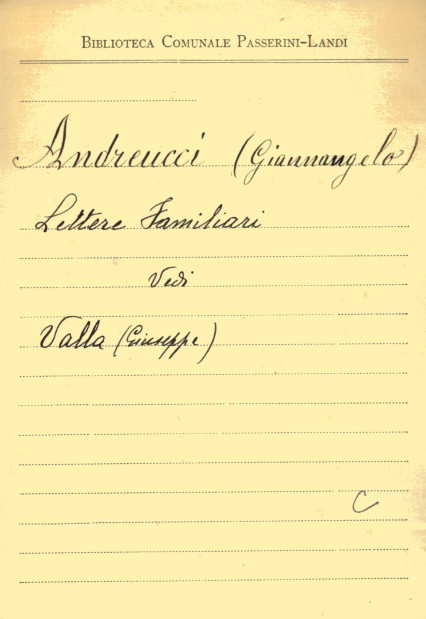 Biblioteca Comunale Passerini-Landi
Andreucci (Giannangelo)
Lettere Familiari
Vedi
Valla (Giuseppe)
C